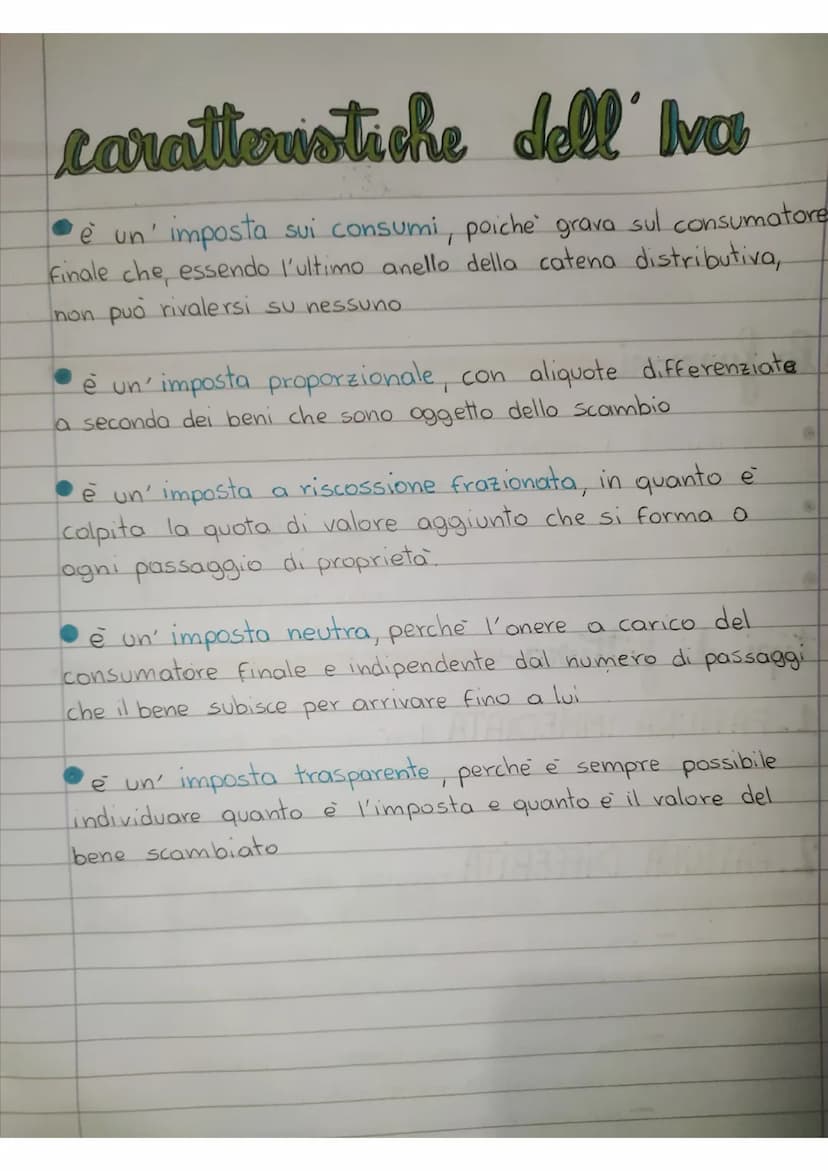 caratteristiche dell'Iva
• è un'imposta sui consumi, poichè grava sul consumatore
finale che, essendo l'ultimo anello della catena distributiva,
non può rivalersi su nessuno
• è un'imposta proporzionale, con aliquote differenziate
a seconda dei beni che sono oggetto dello scambio
• è un'imposta a riscossione frazionata, in quanto è
colpita la quota di valore aggiunto che si forma a
ogni passaggio di proprietà.
• è un'imposta neutra, perchè l'onere a carico del
consumatore finale e indipendente dal numero di passaggi
che il bene subisce per arrivare fino a lui
• è un'imposta trasparente, perchè è sempre possibile
individuare quanto è l'imposta e quanto è il valore del
bene scambiato